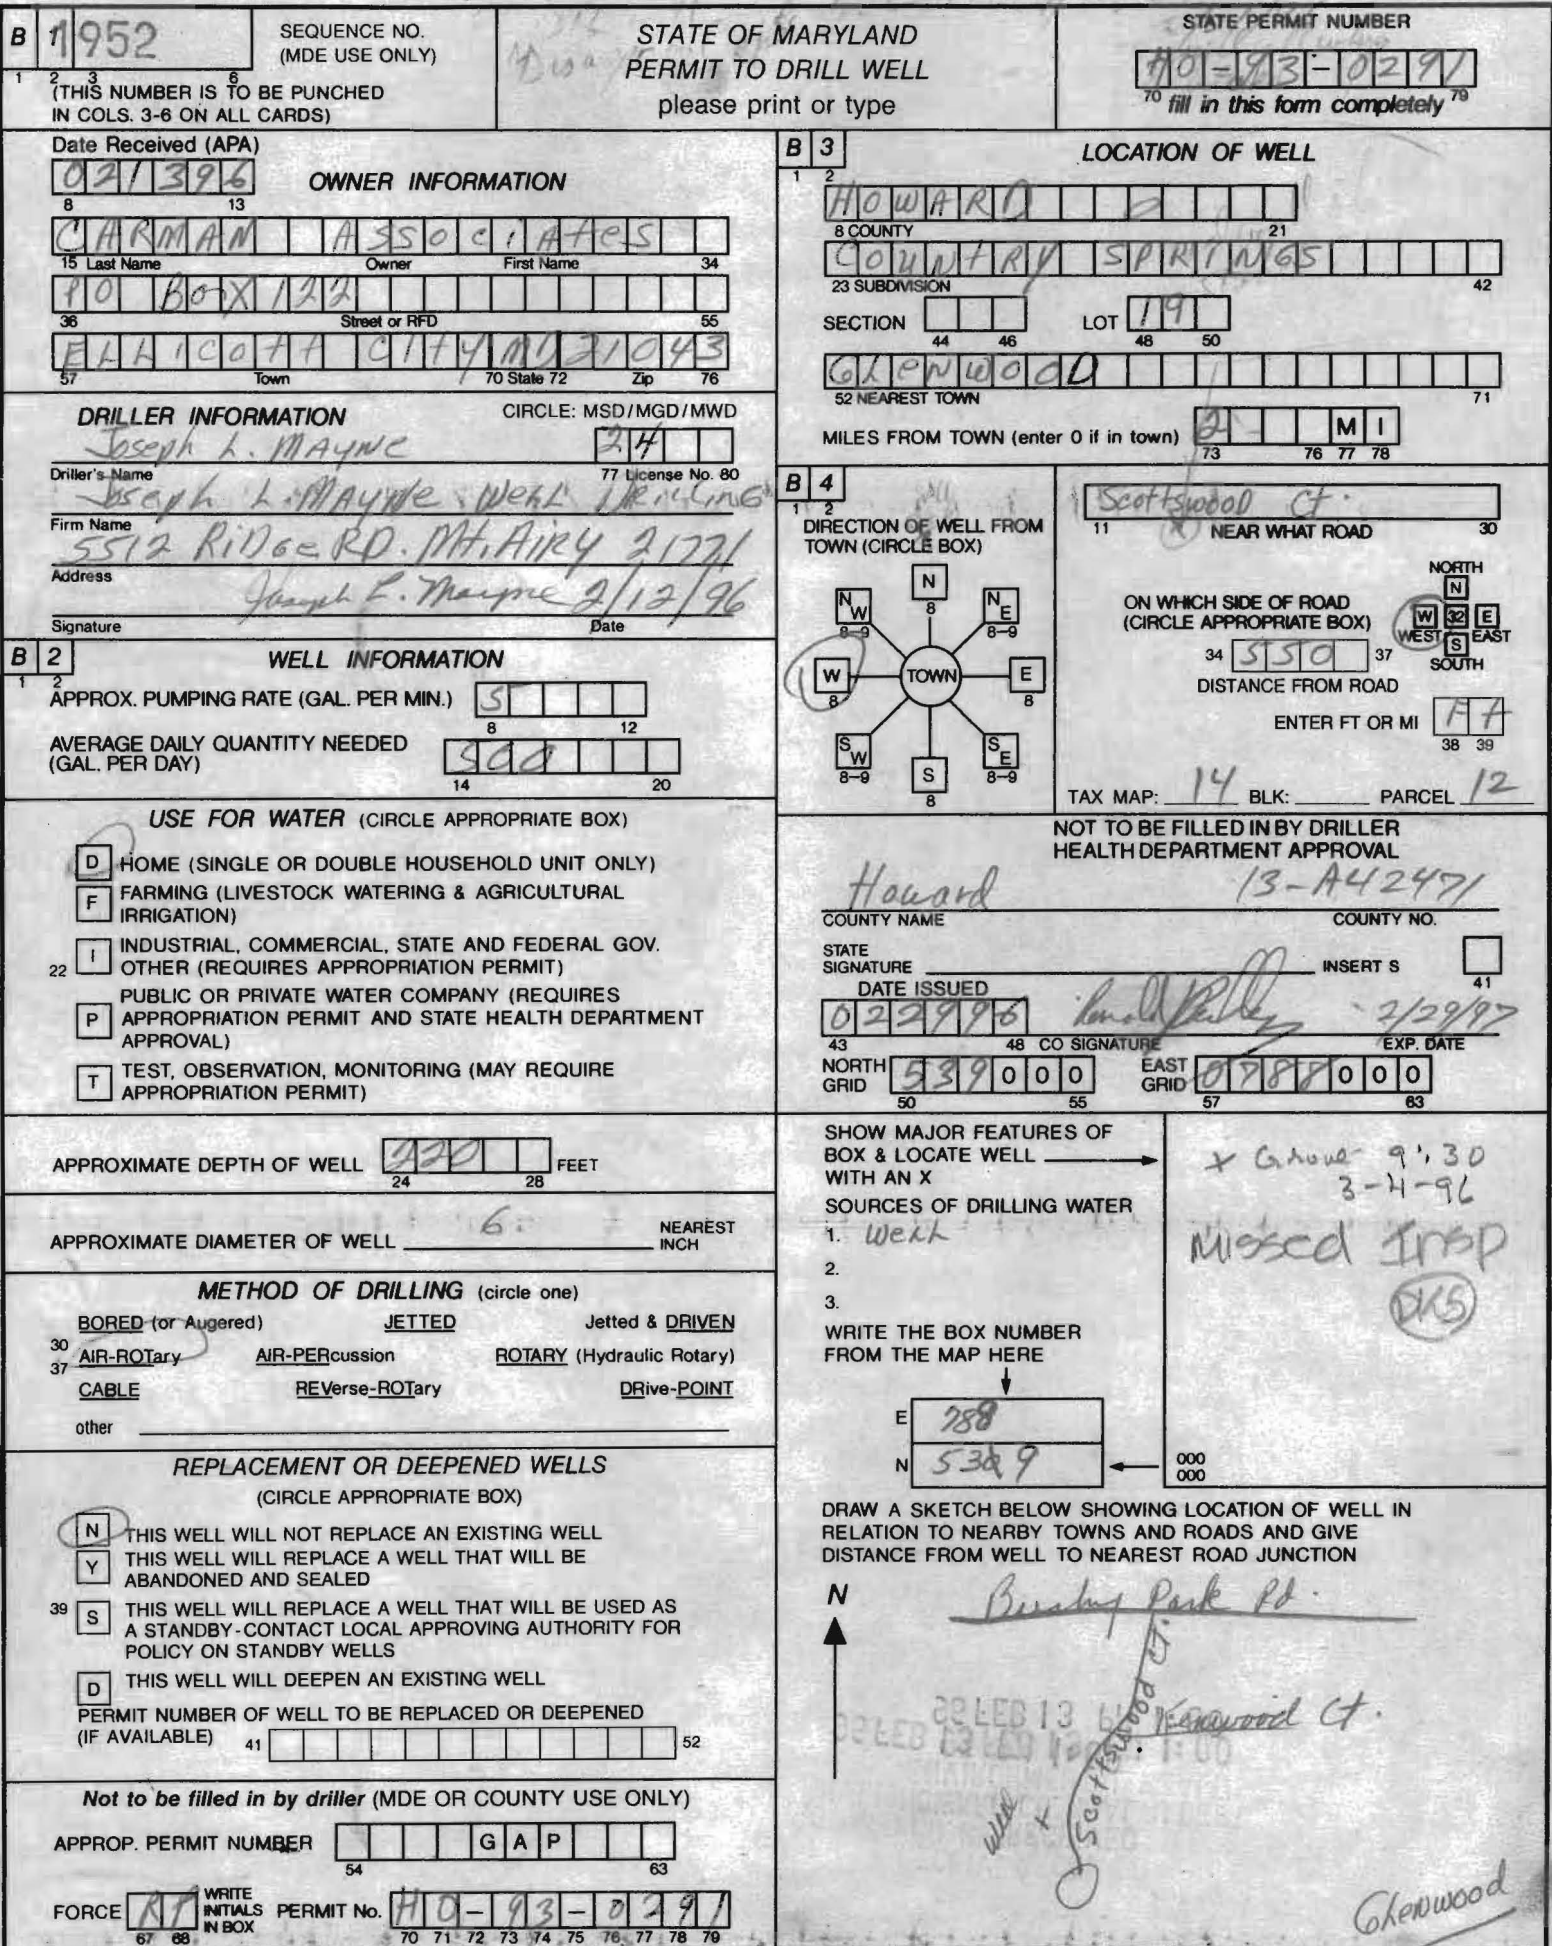 B 1 1952 SEQUENCE NO. (MDE USE ONLY)
1 2 3 6
(THIS NUMBER IS TO BE PUNCHED
IN COLS. 3-6 ON ALL CARDS)
STATE OF MARYLAND
PERMIT TO DRILL WELL
please print or type
STATE PERMIT NUMBER
HO-93-0291
70 fill in this form completely 79
Date Received (APA)
021396
8 13
OWNER INFORMATION
CARMAN ASSOCIATES
15 Last Name Owner First Name 34
PO BOX 122
36 Street or RFD 55
ELLICOTT CITY MD 21043
57 Town 70 State 72 Zip 76
DRILLER INFORMATION
CIRCLE: MSD/MGD/MWD
Joseph L. MAYNE 24
Driller's Name 77 License No. 80
Joseph L. MAYNE WELL DRILLING
Firm Name
5512 RiDge RD. Mt. AiRY 21771
Address
Joseph L. Mayne 2/12/96
Signature Date
B 2 WELL INFORMATION
1 2
APPROX. PUMPING RATE (GAL. PER MIN.) 5
8 12
AVERAGE DAILY QUANTITY NEEDED
(GAL. PER DAY) 500
14 20
USE FOR WATER (CIRCLE APPROPRIATE BOX)
D HOME (SINGLE OR DOUBLE HOUSEHOLD UNIT ONLY)
F FARMING (LIVESTOCK WATERING & AGRICULTURAL
IRRIGATION)
22 I INDUSTRIAL, COMMERCIAL, STATE AND FEDERAL GOV.
OTHER (REQUIRES APPROPRIATION PERMIT)
P PUBLIC OR PRIVATE WATER COMPANY (REQUIRES
APPROPRIATION PERMIT AND STATE HEALTH DEPARTMENT
APPROVAL)
T TEST, OBSERVATION, MONITORING (MAY REQUIRE
APPROPRIATION PERMIT)
APPROXIMATE DEPTH OF WELL 220 FEET
24 28
APPROXIMATE DIAMETER OF WELL 6 NEAREST
INCH
METHOD OF DRILLING (circle one)
BORED (or Augered) JETTED Jetted & DRIVEN
30
37 AIR-ROTary AIR-PERcussion ROTARY (Hydraulic Rotary)
CABLE REVerse-ROTary DRive-POINT
other
REPLACEMENT OR DEEPENED WELLS
(CIRCLE APPROPRIATE BOX)
N THIS WELL WILL NOT REPLACE AN EXISTING WELL
Y THIS WELL WILL REPLACE A WELL THAT WILL BE
ABANDONED AND SEALED
39 S THIS WELL WILL REPLACE A WELL THAT WILL BE USED AS
A STANDBY-CONTACT LOCAL APPROVING AUTHORITY FOR
POLICY ON STANDBY WELLS
D THIS WELL WILL DEEPEN AN EXISTING WELL
PERMIT NUMBER OF WELL TO BE REPLACED OR DEEPENED
(IF AVAILABLE) 41 52
Not to be filled in by driller (MDE OR COUNTY USE ONLY)
APPROP. PERMIT NUMBER G A P
54 63
FORCE RP WRITE INITIALS IN BOX PERMIT No. HO-93-0291
67 68 70 71 72 73 74 75 76 77 78 79
B 3 LOCATION OF WELL
1 2
HOWARD
8 COUNTY 21
COUNTRY SPRINGS
23 SUBDIVISION 42
SECTION LOT 19
44 46 48 50
GLENWOOD
52 NEAREST TOWN 71
MILES FROM TOWN (enter 0 if in town) 2 M I
73 76 77 78
B 4
1 2
DIRECTION OF WELL FROM
TOWN (CIRCLE BOX)
N 8
NW 8-9 NE 8-9
W 8 TOWN E 8
SW 8-9 SE 8-9
S 8
Scottswood Ct.
11 NEAR WHAT ROAD 30
ON WHICH SIDE OF ROAD
(CIRCLE APPROPRIATE BOX)
NORTH
N
W 32 E
WEST EAST
S
SOUTH
34 550 37
DISTANCE FROM ROAD
ENTER FT OR MI Ft
38 39
TAX MAP: 14 BLK: PARCEL 12
NOT TO BE FILLED IN BY DRILLER
HEALTH DEPARTMENT APPROVAL
Howard 13-A42471
COUNTY NAME COUNTY NO.
STATE
SIGNATURE INSERT S
41
DATE ISSUED
022996 2/29/97
43 48 CO SIGNATURE EXP. DATE
NORTH GRID 539000 EAST GRID 0788000
50 55 57 63
SHOW MAJOR FEATURES OF
BOX & LOCATE WELL
WITH AN X
SOURCES OF DRILLING WATER
1. Well
2.
3.
WRITE THE BOX NUMBER
FROM THE MAP HERE
E 788
N 539
000
000
9:30
3-4-96
Missed Insp
DKS
DRAW A SKETCH BELOW SHOWING LOCATION OF WELL IN
RELATION TO NEARBY TOWNS AND ROADS AND GIVE
DISTANCE FROM WELL TO NEAREST ROAD JUNCTION
N
Bushy Park Rd.
Scottswood Ct.
Well
X
Glenwood